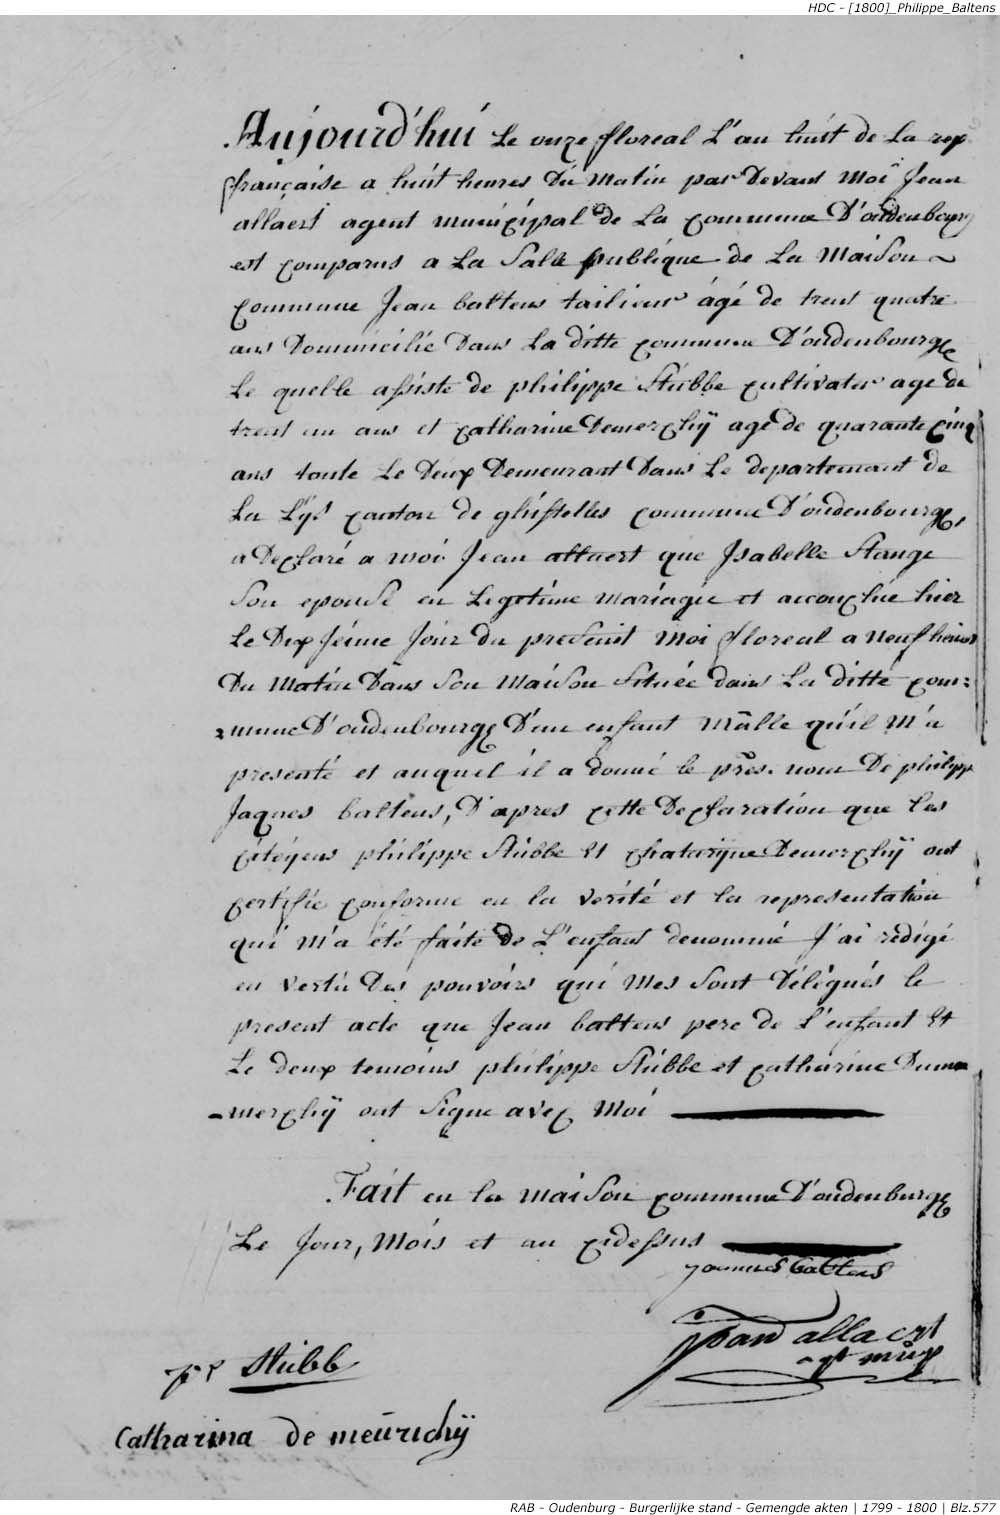 HDC - [1800]_Philippe_Baltens
Aujourd'hui Le onze floreal L'an huit de La rep
française a huit heures Du Matin par Devant Moi Jean
allaert agent municipal de La commune D'oudenbourg
est comparus a La Salle publique de La Maison
commune Jean baltens tailieur âgé de trent quatre
ans Dommicilié Dans La ditte commune D'oudenbourge
Le quelle assisté de philippe Stubbe cultivateur age de
trent un ans et catharine Demerchÿ age de quarante cinq
ans toute Le Deux Demeurant Dans Le departemant de
La Lÿs canton de ghistelles commune D'oudenbourge,
a Declaré a moi Jean allaert que Isabelle Stange
Son epouse en Legetime mariagie et accouchée hier
Le Dix Jéime Jour du present Moi floreal a neuf heures
Du Matin Dans Son Maison Située dans La ditte com=
=mune D'oudenbourge D'un enfant Mâlle qu'il M'a
presenté et auquel il a donné le prés. nom De philipp
Jaques baltens, D'apres cette Declaration que les
citoÿens philippe Stubbe Et chatarÿne Demerchÿ ont
certifié conforme en la verité et la representation
qui M'a été faite De L'enfant denommé J'ai rédigé
en vertu Des pouvoirs qui Mes Sont Délégués le
present acte que Jean baltens pere de L'enfant Et
Le deux temoins philippe Stubbe et catharine Dum
-merchÿ ont Signe avec Moi
Fait en la maiSon commune D'oudenburge
Le Jour, Mois et an cidessus
joannes baltens
jean allaert
agt muc
Stubb
Catharina de meurichÿ
RAB - Oudenburg - Burgerlijke stand - Gemengde akten | 1799 - 1800 | Blz.577